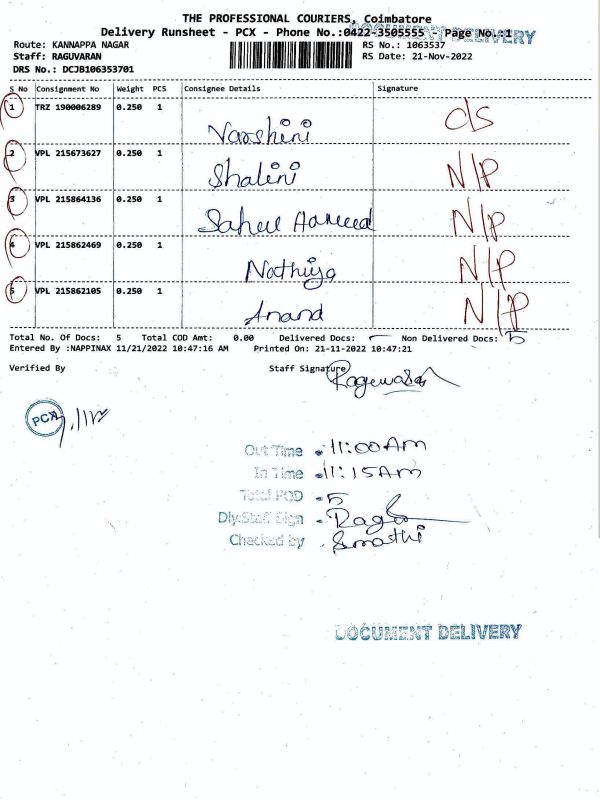 THE PROFESSIONAL COURIERS, Coimbatore
Delivery Runsheet - PCX - Phone No.:0422-3505555 - Page No.:1
DOCUMENT DELIVERY
Route: KANNAPPA NAGAR RS No.: 1063537
Staff: RAGUVARAN RS Date: 21-Nov-2022
DRS No.: DCJB106353701
S No Consignment No Weight PCS Consignee Details Signature
1 TRZ 190006289 0.250 1 Varshini D/S
2 VPL 215673627 0.250 1 Shalini N/P
3 VPL 215864136 0.250 1 Saheel Hameed N/P
4 VPL 215862469 0.250 1 Nathiya N/P
5 VPL 215862105 0.250 1 Anand N/P
Total No. Of Docs: 5 Total COD Amt: 0.00 Delivered Docs: Non Delivered Docs: 5
Entered By :NAPPINAX 11/21/2022 10:47:16 AM Printed On: 21-11-2022 10:47:21
Verified By Staff Signature
PCX
Out Time 11:00 Am
In Time 11:15 Am
Total POD - 5
Dly.Staff Sign - Ragu
Checked by
DOCUMENT DELIVERY